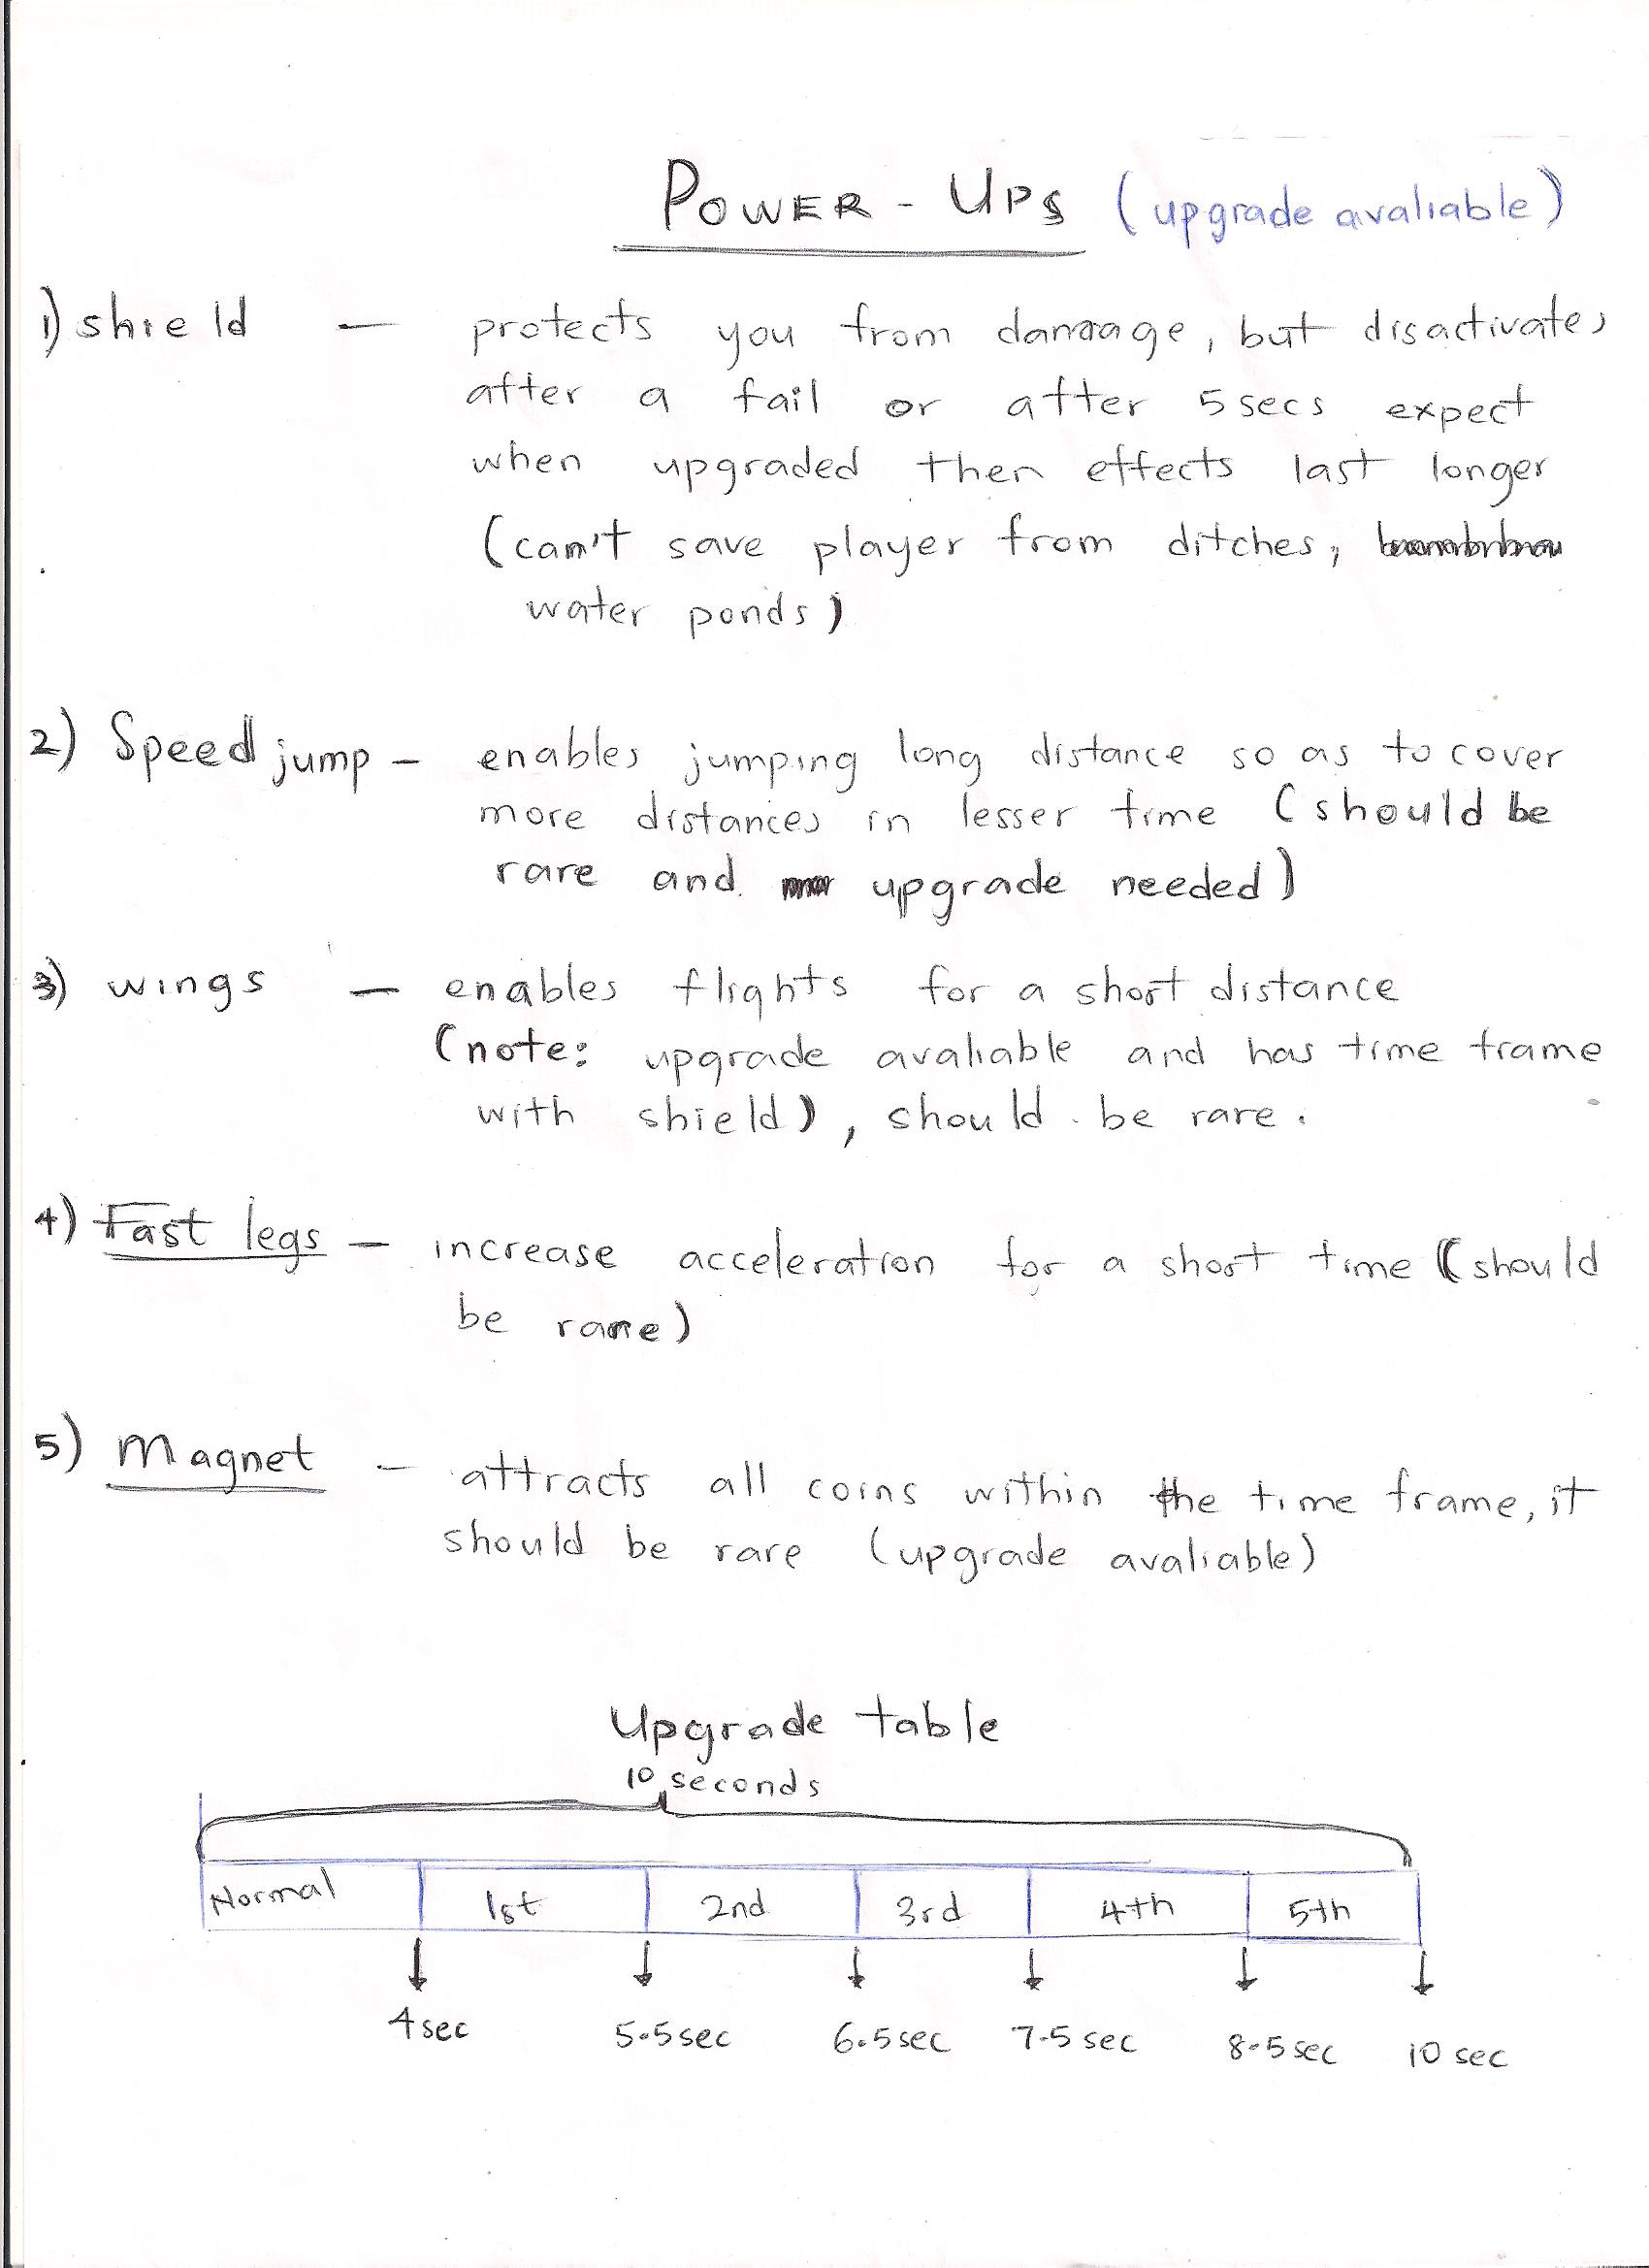 POWER - UPS (upgrade avaliable)
1) shield — protects you from damage, but disactivates
after a fail or after 5 secs expect
when upgraded then effects last longer
(can't save player from ditches,
water ponds)
2) Speed jump - enables jumping long distance so as to cover
more distances in lesser time (should be
rare and upgrade needed)
3) wings — enables flights for a short distance
(note: upgrade avaliable and has time frame
with shield), should be rare.
4) Fast legs - increase acceleration for a short time (should
be rare)
5) Magnet - attracts all coins within the time frame, it
should be rare (upgrade avaliable)
Upgrade table
10 seconds
Normal 1st 2nd 3rd 4th 5th
4 sec 5.5 sec 6.5 sec 7.5 sec 8.5 sec 10 sec